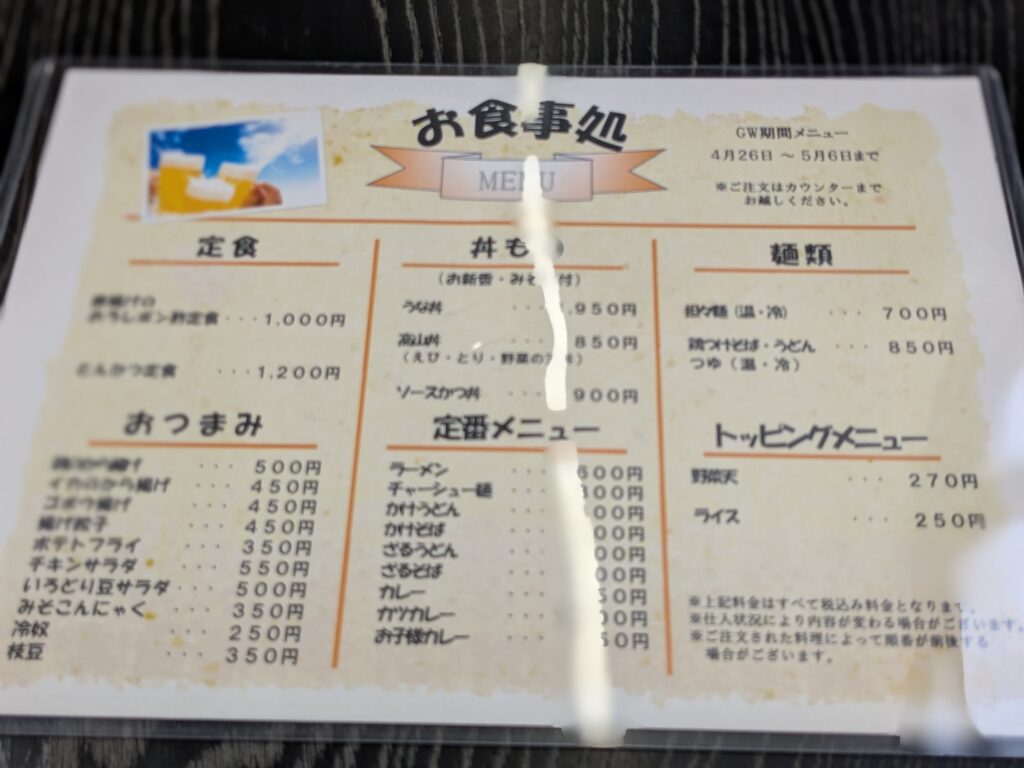 お食事処
MENU
GW期間メニュー
4月26日 ～ 5月6日まで
※ご注文はカウンターまで
お越しください。
定食
おろしポン酢定食 ・・・ 1,000円
とんかつ定食 ・・・ 1,200円
おつまみ
・・・ 500円
イカのから揚げ ・・・ 450円
ゴボウ揚げ ・・・ 450円
揚げ餃子 ・・・ 450円
ポテトフライ ・・・ 350円
チキンサラダ ・・・ 550円
いろどり豆サラダ ・・・ 500円
みそこんにゃく ・・・ 350円
冷奴 ・・・ 250円
枝豆 ・・・ 350円
丼も
(お新香・みそ 付)
うな丼 ・・・ 950円
高山丼 ・・・ 850円
(えび・とり・野菜の 丼)
ソースかつ丼 ・・・ 900円
定番メニュー
ラーメン ・・・ 600円
チャーシュー麺 ・・・ 00円
かけうどん ・・・ 00円
かけそば ・・・ 00円
ざるうどん ・・・ 00円
ざるそば ・・・ 00円
カレー ・・・ 50円
カツカレー ・・・ 00円
お子様カレー ・・・ 50円
麺類
担々麺 (温・冷) ・・・ 700円
鶏つけそば・うどん ・・・ 850円
つゆ (温・冷)
トッピングメニュー
野菜天 ・・・ 270円
ライス ・・・ 250円
※上記料金はすべて税込み料金となります。
※仕入状況により内容が変わる場合がございます。
※ご注文された料理によって順番が前後する
場合がございます。